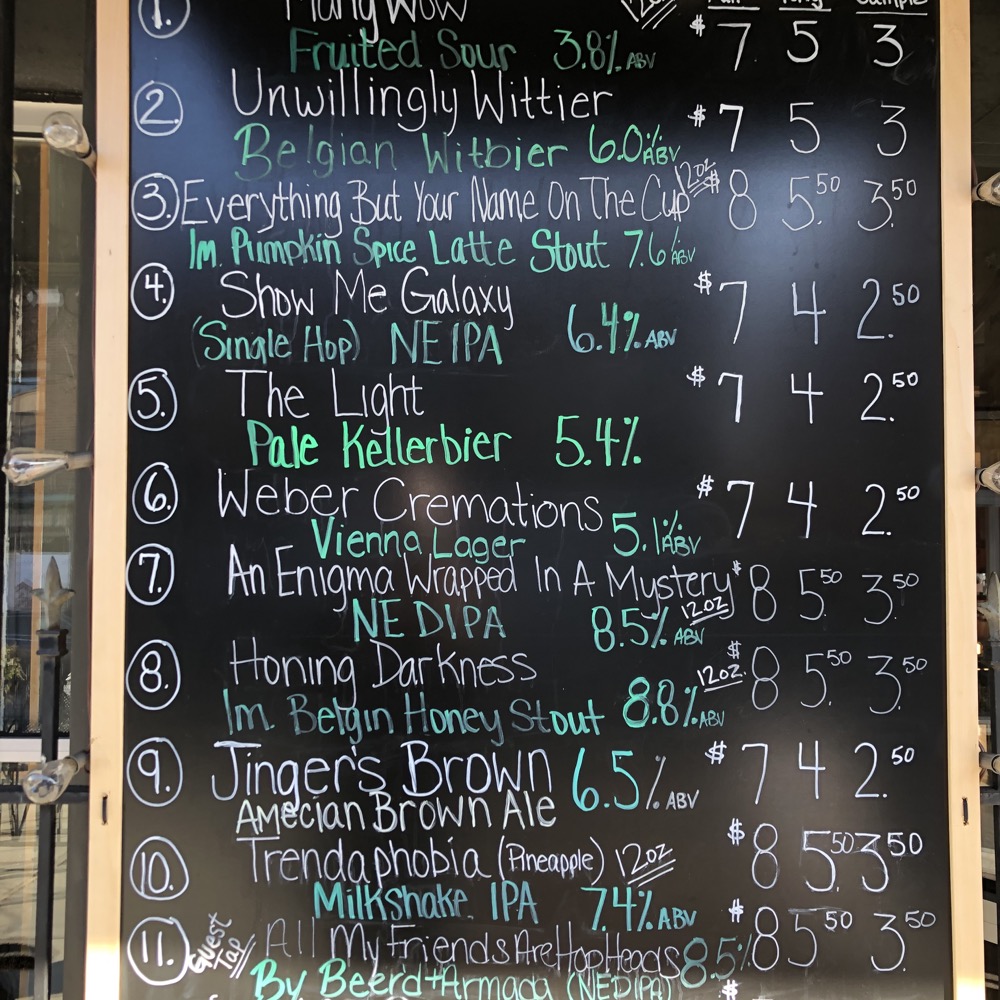 1. Mang Wow 12oz $ 7 5 3
Fruited Sour 3.8% ABV
2. Unwillingly Wittier $ 7 5 3
Belgian Witbier 6.0% ABV
3. Everything But Your Name On The Cup 12oz $ 8 5.50 3.50
Im. Pumpkin Spice Latte Stout 7.6% ABV
4. Show Me Galaxy $ 7 4 2.50
(Single Hop) NEIPA 6.4% ABV
5. The Light $ 7 4 2.50
Pale Kellerbier 5.4%
6. Weber Cremations $ 7 4 2.50
Vienna Lager 5.1% ABV
7. An Enigma Wrapped In A Mystery $ 8 5.50 3.50
NE DIPA 8.5% ABV 12oz
8. Honing Darkness 12oz. $ 8 5.50 3.50
Im. Belgin Honey Stout 8.8% ABV
9. Jinger's Brown 6.5% ABV $ 7 4 2.50
Amecian Brown Ale
10. Trendaphobia (Pineapple) 12oz $ 8 5.50 3.50
Milkshake IPA 7.4% ABV
11. Guest Tap All My Friends Are Hop Heads 8.5% $ 8 5.50 3.50
By Beerd + Armada (NEDIPA) $